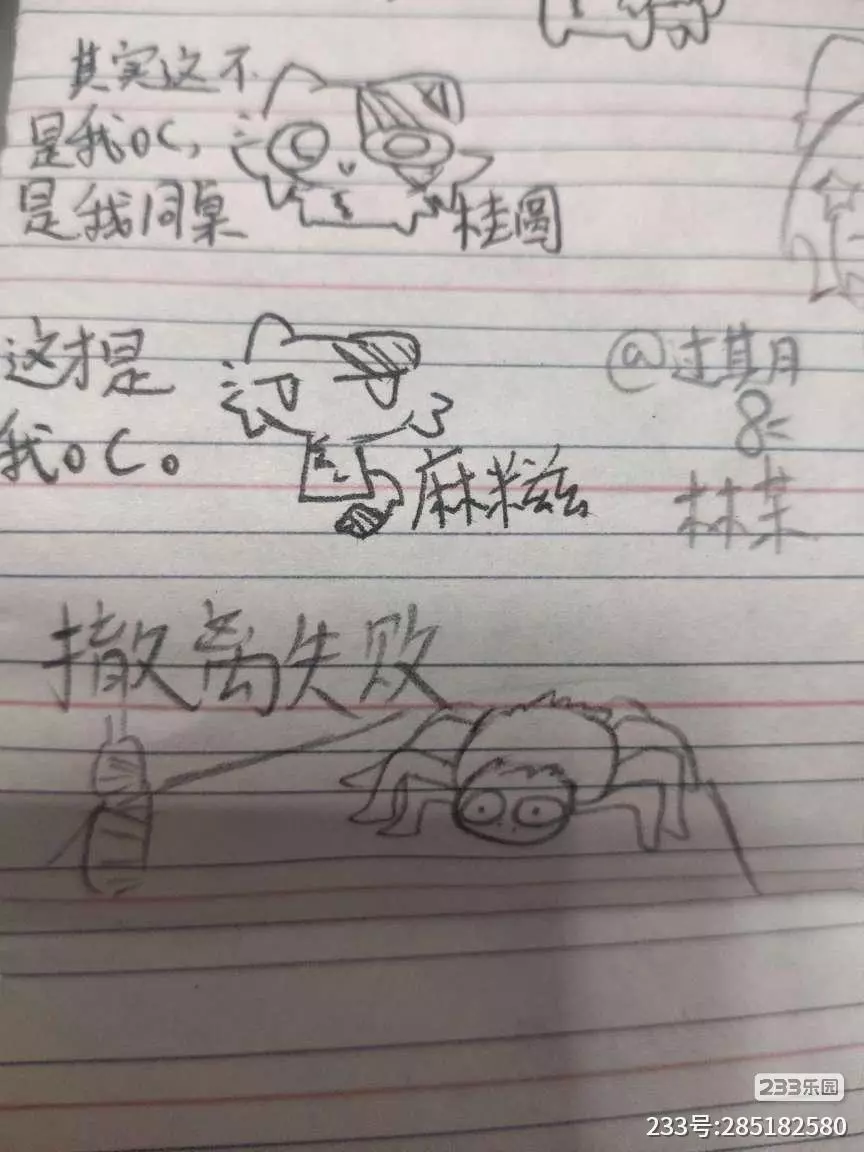 其实这不
是我OC,
是我同桌
桂圆
这才是
我OC。
麻糍
@过其月
林苿
撤离失败
233乐园
233号:285182580